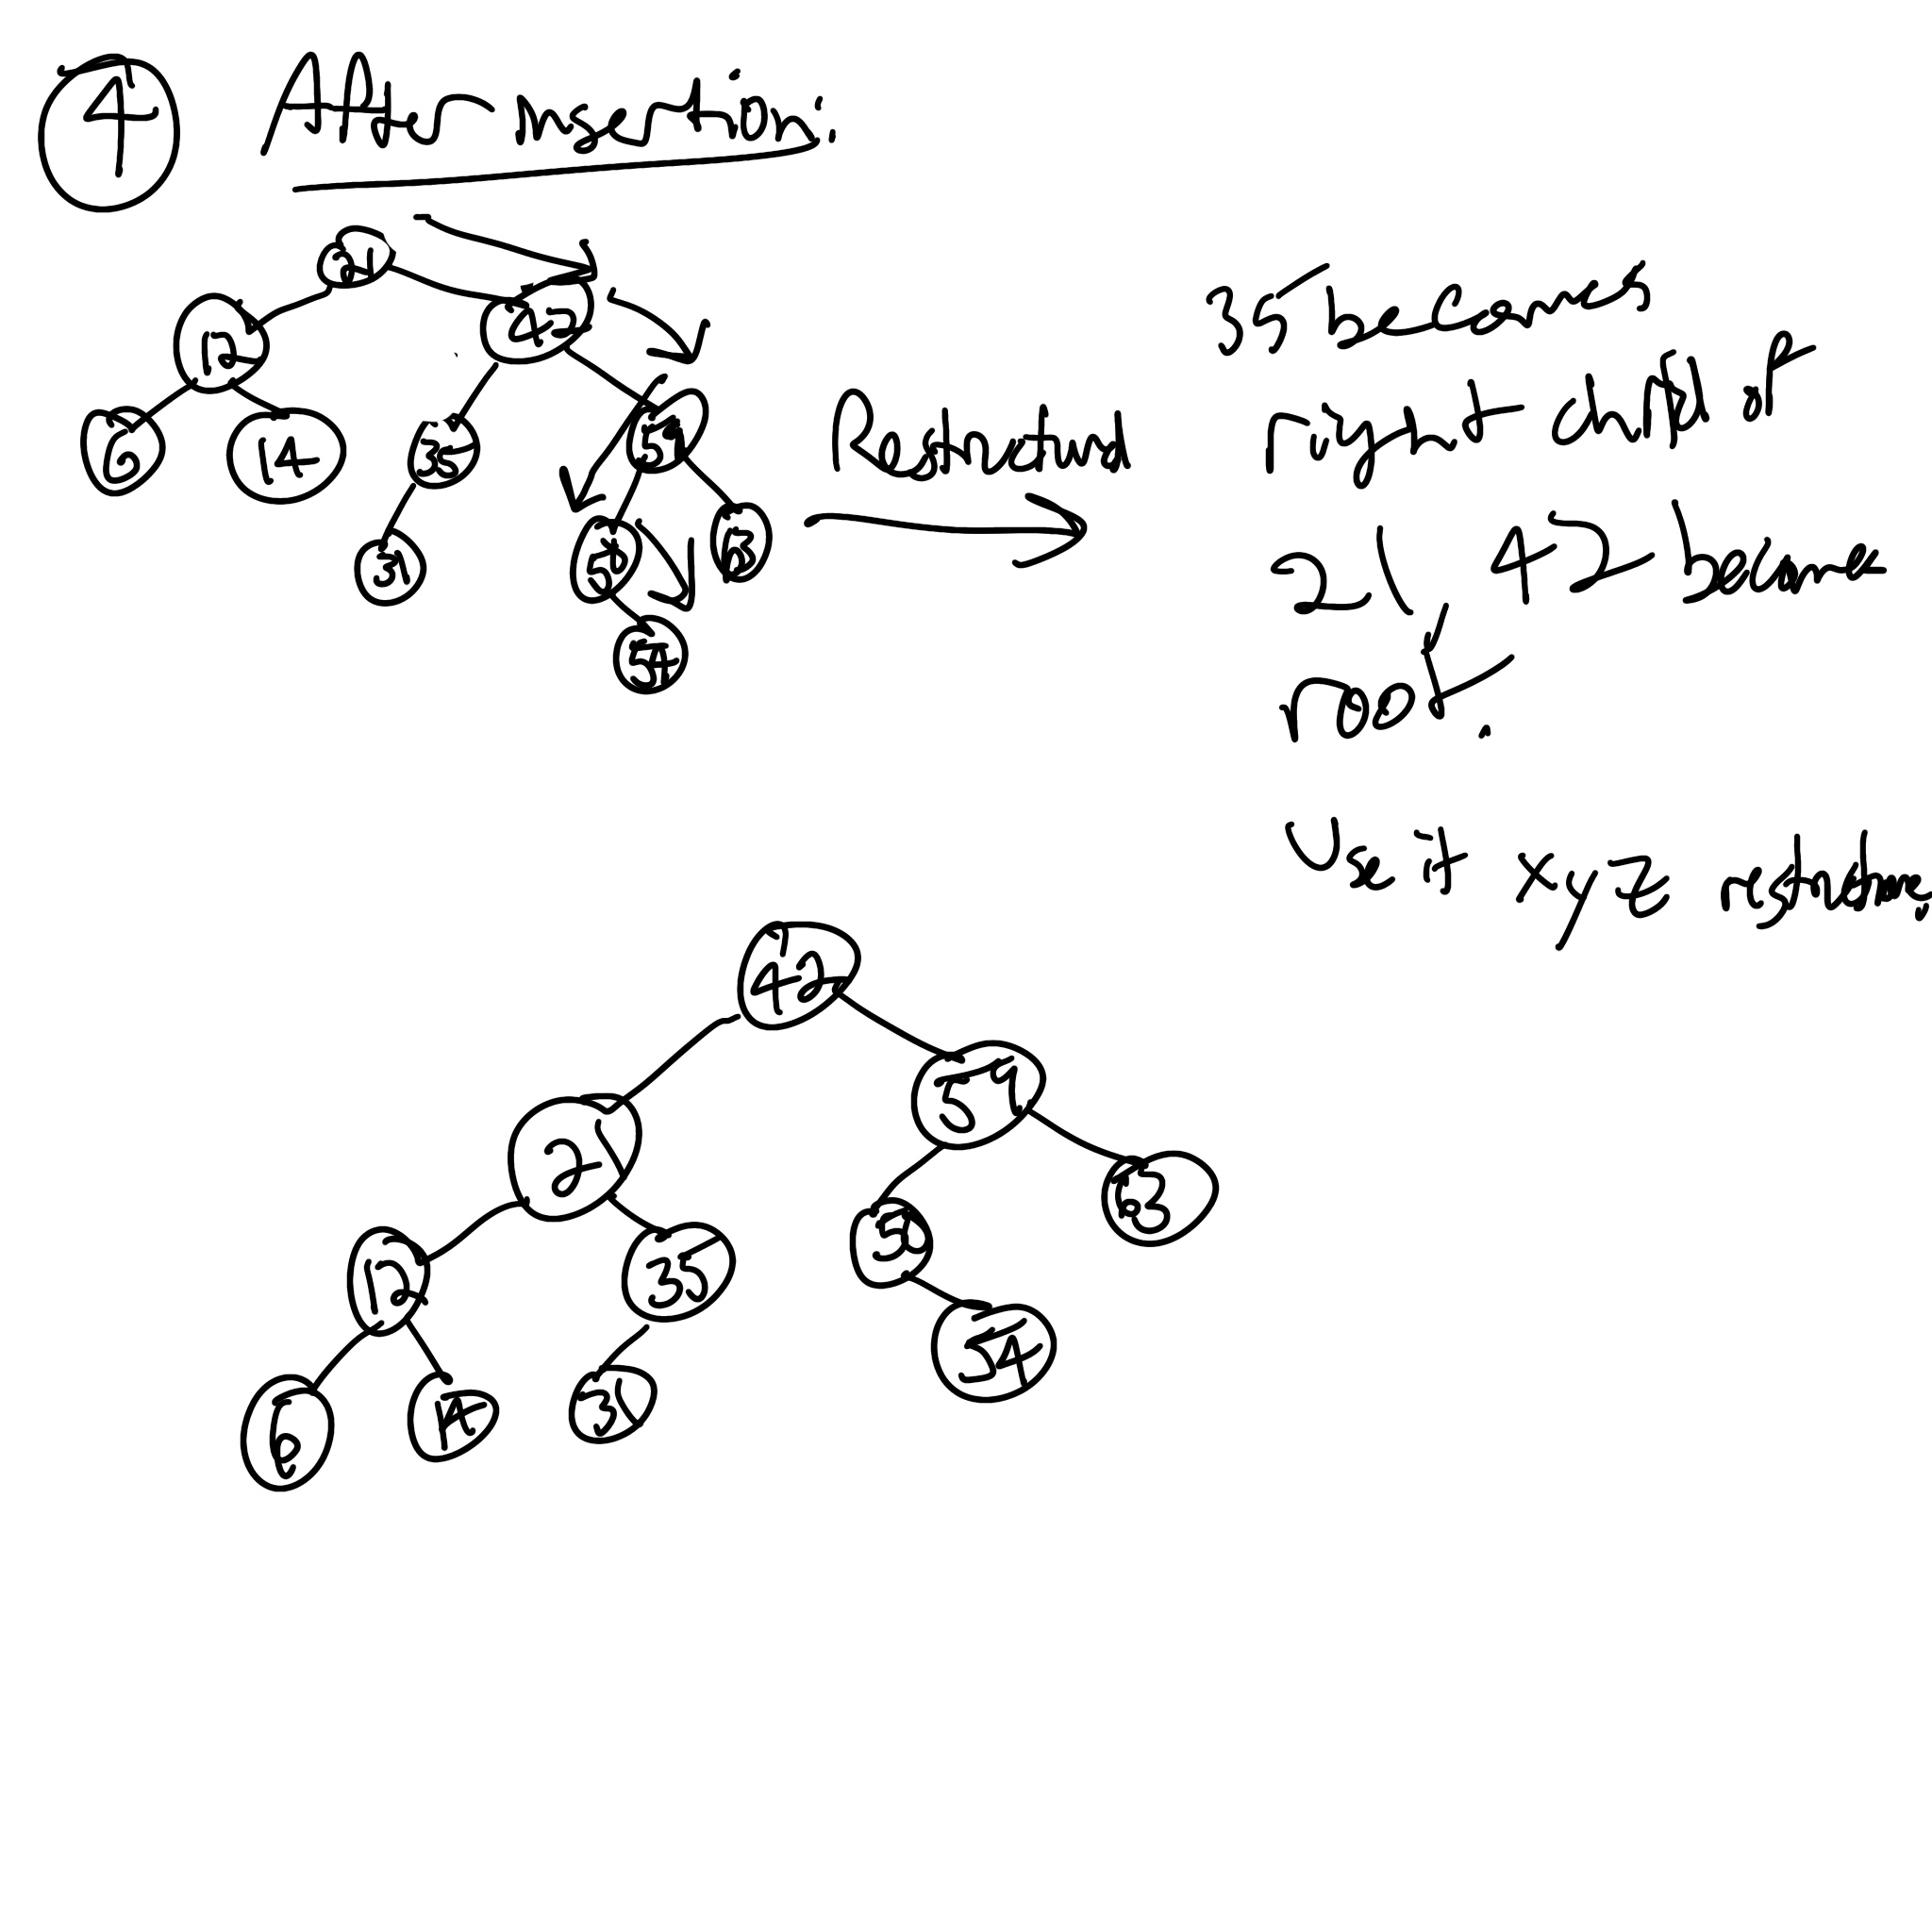 4 After insertion:
21
12 42
6 14 35 59
31 50 63
54
Restructured
35 becomes
right child of
21, 42 become
root.
Use it xyz restructuring
42
21 59
12 35 50 63
6 14 31 54